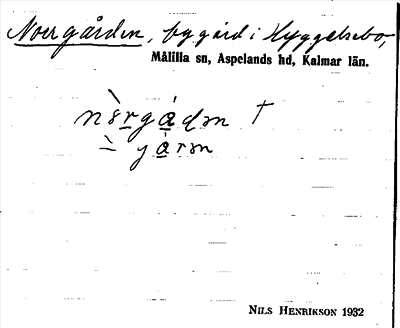 Norrgården, bygård i Hyggelsebo,
Målilla sn, Aspelands hd, Kalmar län.
nòrgádn †
NILS HENRIKSON 1932